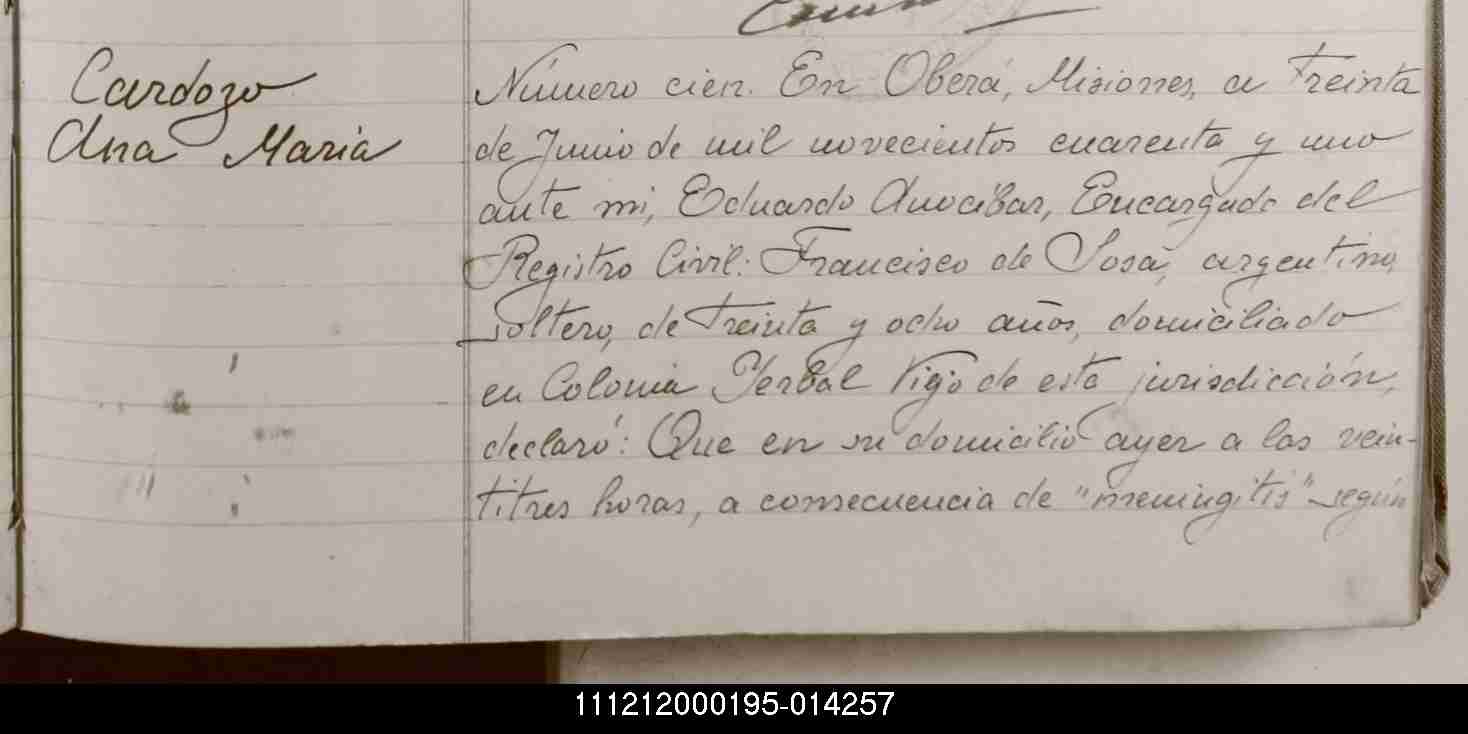 Cardozo
Ana Maria
Número cien. En Oberá, Misiones, a treinta
de Junio de mil novecientos cuarenta y uno
ante mi, Eduardo Anocíbar, Encargado del
Registro Civil: Francisco de Sosa, argentino,
soltero, de treinta y ocho años, domiciliado
en Colonia Yerbal Viejo de esta jurisdicción,
declaró: Que en su domicilio ayer a las vein-
titres horas, a consecuencia de "meningitis" según
111212000195-014257